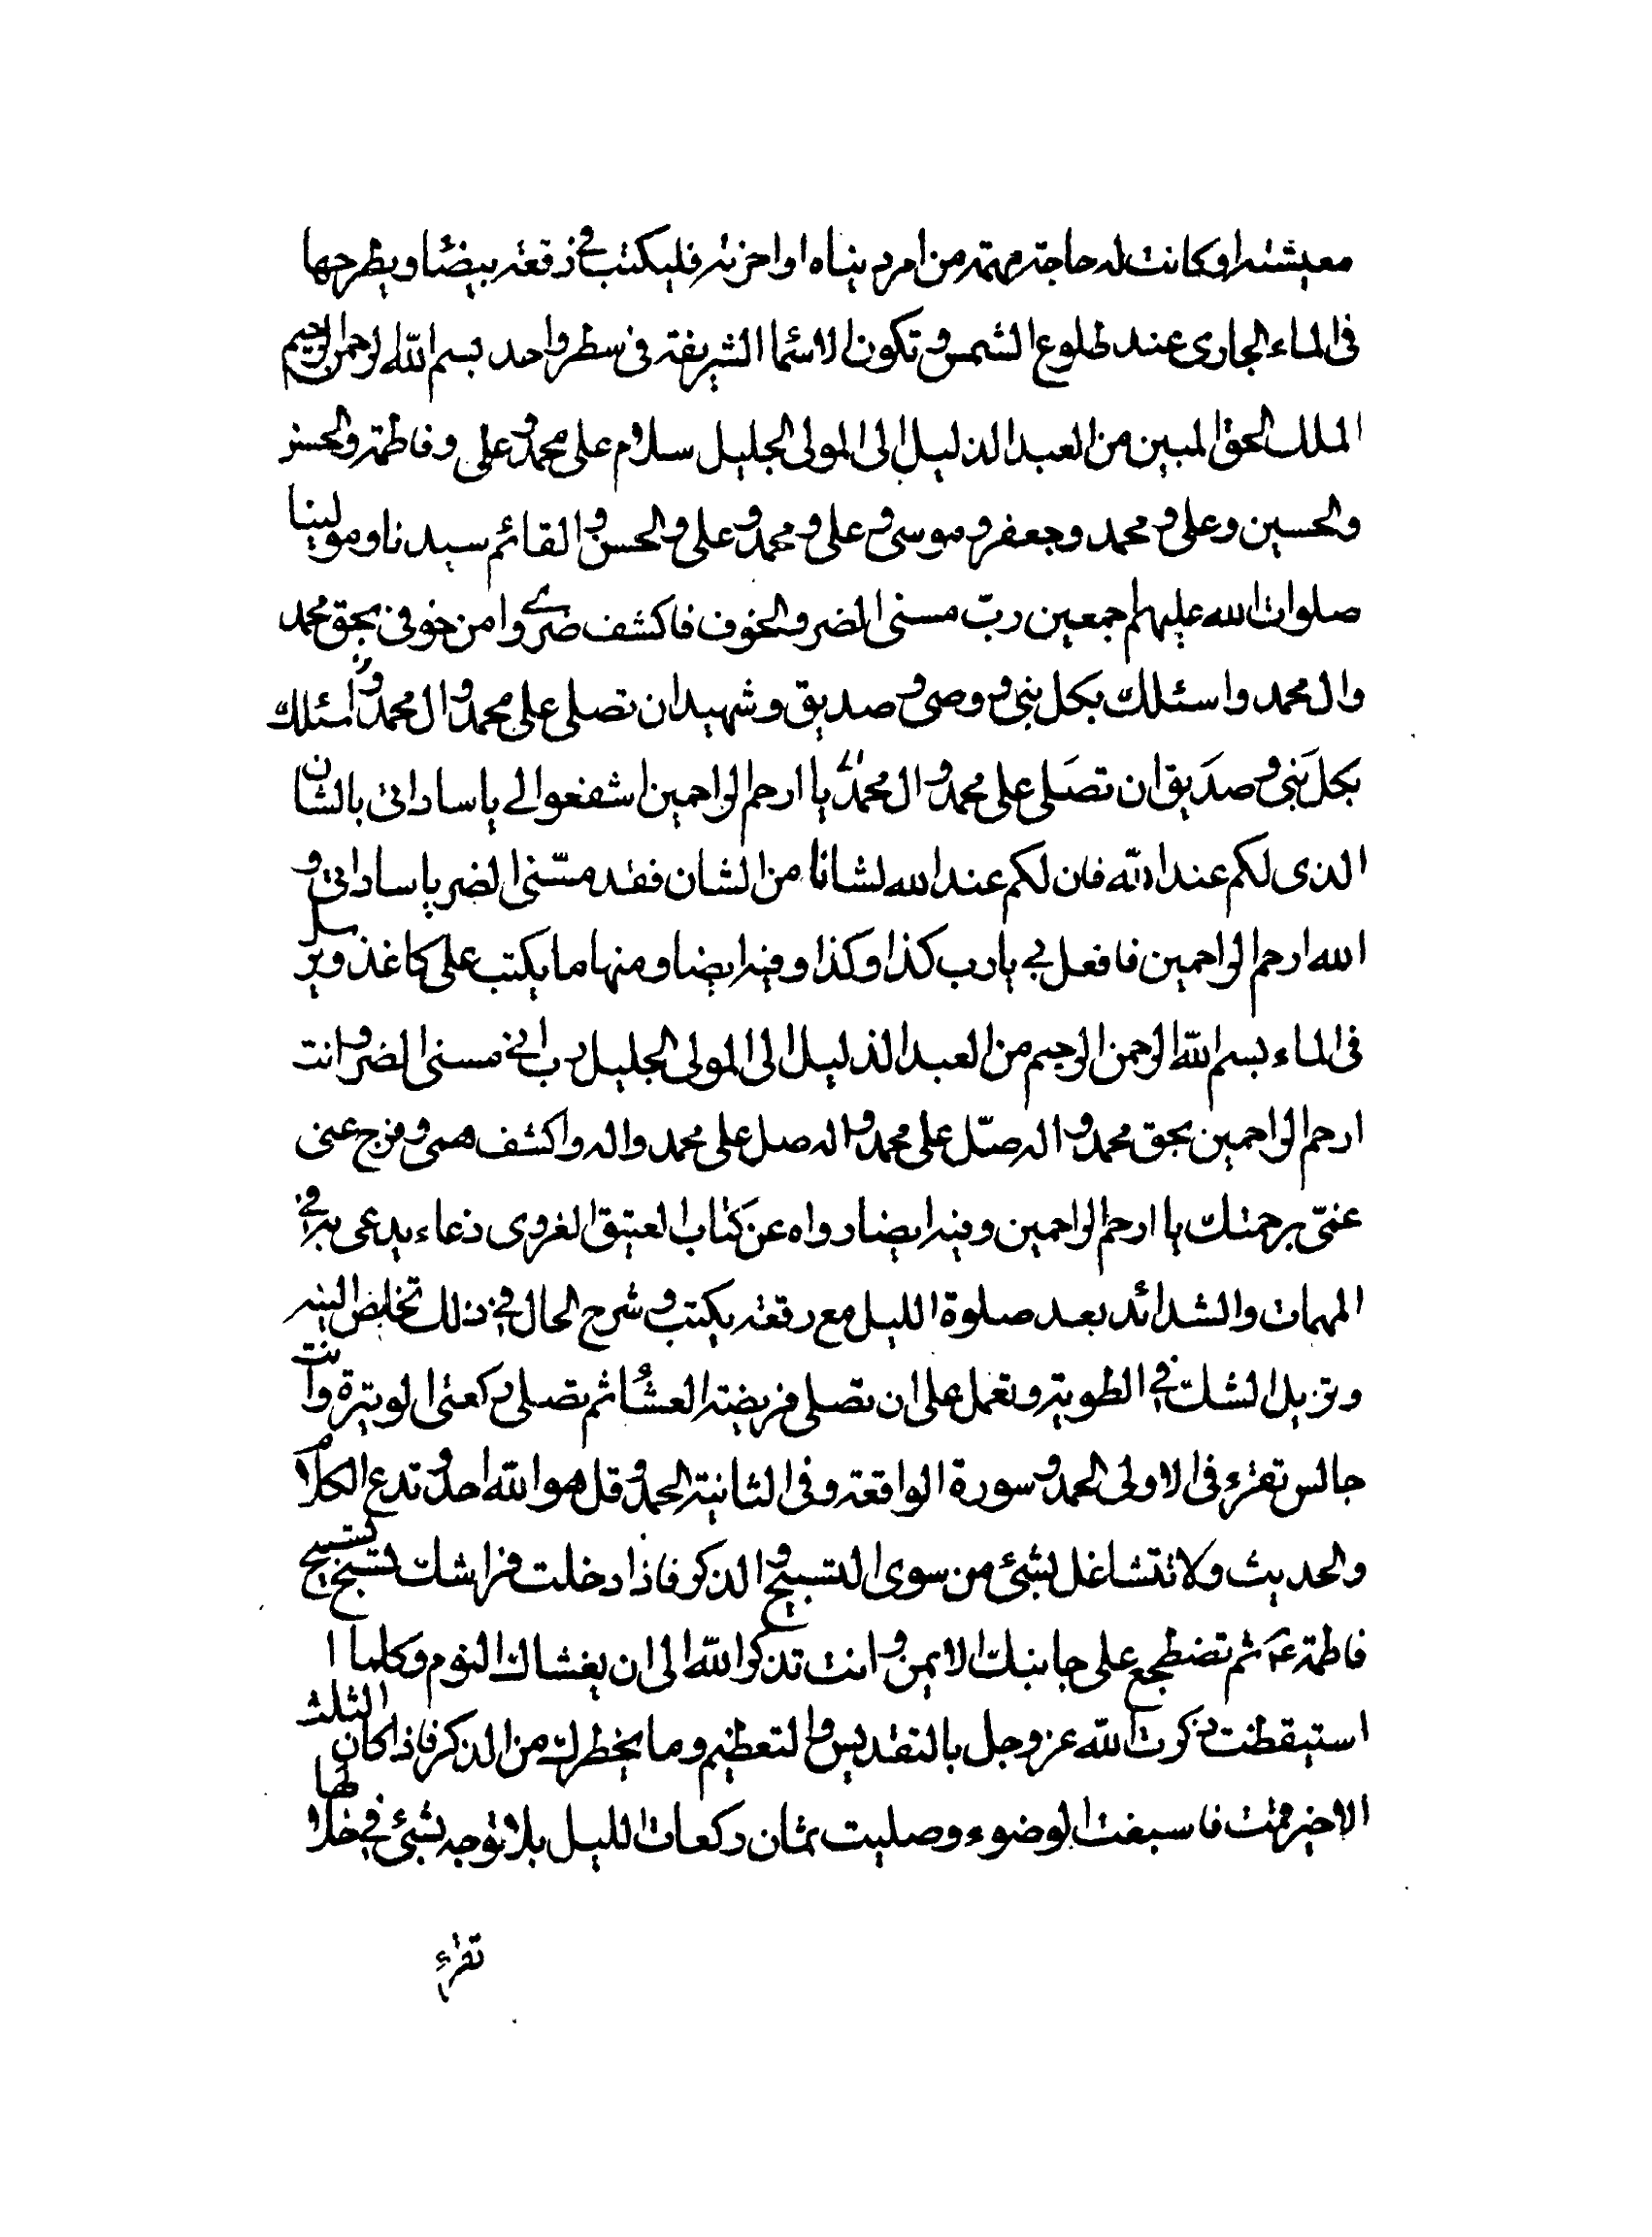 معيشته او كانت له حاجة مهمة من امر دينياه او اخرته فليكتب في رقعة بيضا ويطرحها
فى الماء الجارى عند طلوع الشمس و تكون الاسما الشريفة فى سطر واحد بسم الله الرحمن الرحيم
الملك الحق المبين من العبد الذليل الى المولى الجليل سلام على محمد و على و فاطمة و الحسن
والحسين و على و محمد و جعفر و موسى و على و محمد و على و الحسن و القائم سيدنا و مولينا
صلوات الله عليهم اجمعين رب مسنى الضر و الخوف فاكشف ضرى وامن خوفى بحق محمد
وال محمد واسئلك بكل نبى و وصى و صديق و شهيد ان تصلى على محمد و ال محمد و اسئلك
بكل نبى و صديق ان تصلى على محمد و ال محمد يا ارحم الراحمين اشفعوا لي يا ساداتى بالشان
الذى لكم عند الله فان لكم عند الله لشانا من الشان فقد مسنى الضر يا ساداتى و
الله ارحم الراحمين فافعل بي يا رب كذا و كذا و فيه ايضا و منها ما يكتب على كاغذ و يرسل
فى الماء بسم الله الرحمن الرحيم من العبد الذليل الى المولى الجليل رب انى مسنى الضر و انت
ارحم الراحمين بحق محمد و اله صل على محمد و اله صل على محمد واله واكشف همى و فرج عنى
عنى برحمتك يا ارحم الراحمين و فيه ايضا رواه عن كتاب العتيق الغروى دعاء يدعى به في
المهمات والشدائد بعد صلوة الليل مع رقعة يكتب و شرح الحال في ذلك تخلص النيه
و تزيل الشك في الطوية و تعمل على ان تصلى فريضة العشا ثم تصلى ركعتى الوتيرة و انت
جالس تقرء فى الاولى الحمد و سورة الواقعة و فى الثانية الحمد و قل هو الله احد و تدع الكلام
والحديث ولا تتشاغل بشئ من سوى التسبيح و الذكر فاذا دخلت فراشك تسبح تسبيح
فاطمة ع ثم تضطجع على جانبك الايمن و انت تذكر الله الى ان يغشاك النوم و كلما ا
استيقظت ذكرت الله عز و جل بالتقديس و التعظيم و ما يخطر لك من الذكر فاذا كان الثلث
الاخير قمت فاسبغت الوضوء و صليت ثمان ركعات الليل بلا توجه بشئ في خلالها
تقرء